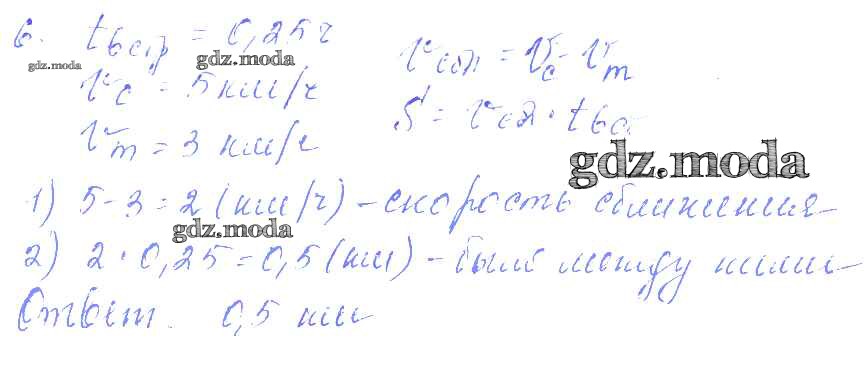 6. tвстр = 0,25 ч
gdz.moda
gdz.moda
vсбл = vс - vт
vс = 5 км/ч
S = vсбл · tвс
vт = 3 км/ч
gdz.moda
1) 5-3=2 (км/ч) - скорость сближения
gdz.moda
2) 2·0,25=0,5 (км) - было между ними
Ответ. 0,5 км